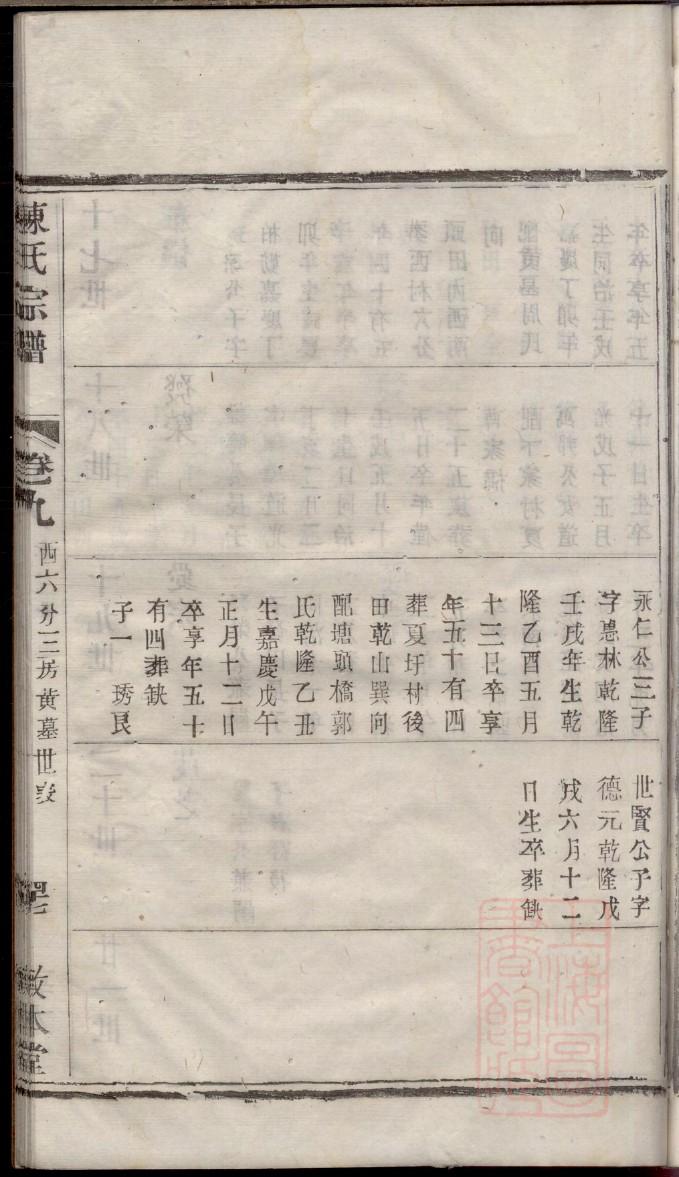 永仁公三子
字惪林乾隆
壬戌年生乾
隆乙酉五月
十三日卒享
年五十有四
葬夏圩村後
田乾山巽向
配塘頭橋郭
氏乾隆乙丑
生嘉慶戊午
正月十二日
卒享年五十
有四葬缺
子一 琇艮
世賢公子字
德元乾隆戊
戌六月十二
日生卒葬缺
陳氏宗譜
卷九
西六分三房黃墓世表
敦本堂